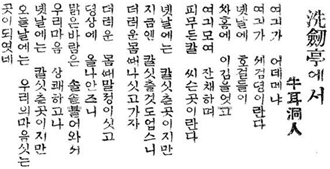 洗劍亭에서
牛耳洞人
여긔가 어데메냐
여긔가 세검뎡이란다
녯날에 호걸들이
차홈에 이김을엇고
여긔모여 잔채하며
피무든칼 씨슨곳이란다
녯날에는 칼싯츤곳이지만
지금엔 칼싯츨것도업스니
더러운몸때나싯고가자
더러운 몸때말정이싯고
뎡상에 올나안즈니
맑은바람은 솔솔불어와서
우리마음 상쾌하고나
녯날에는 칼싯츤곳이지만
오늘날에는 우리의마음싯는
곳이되엿네